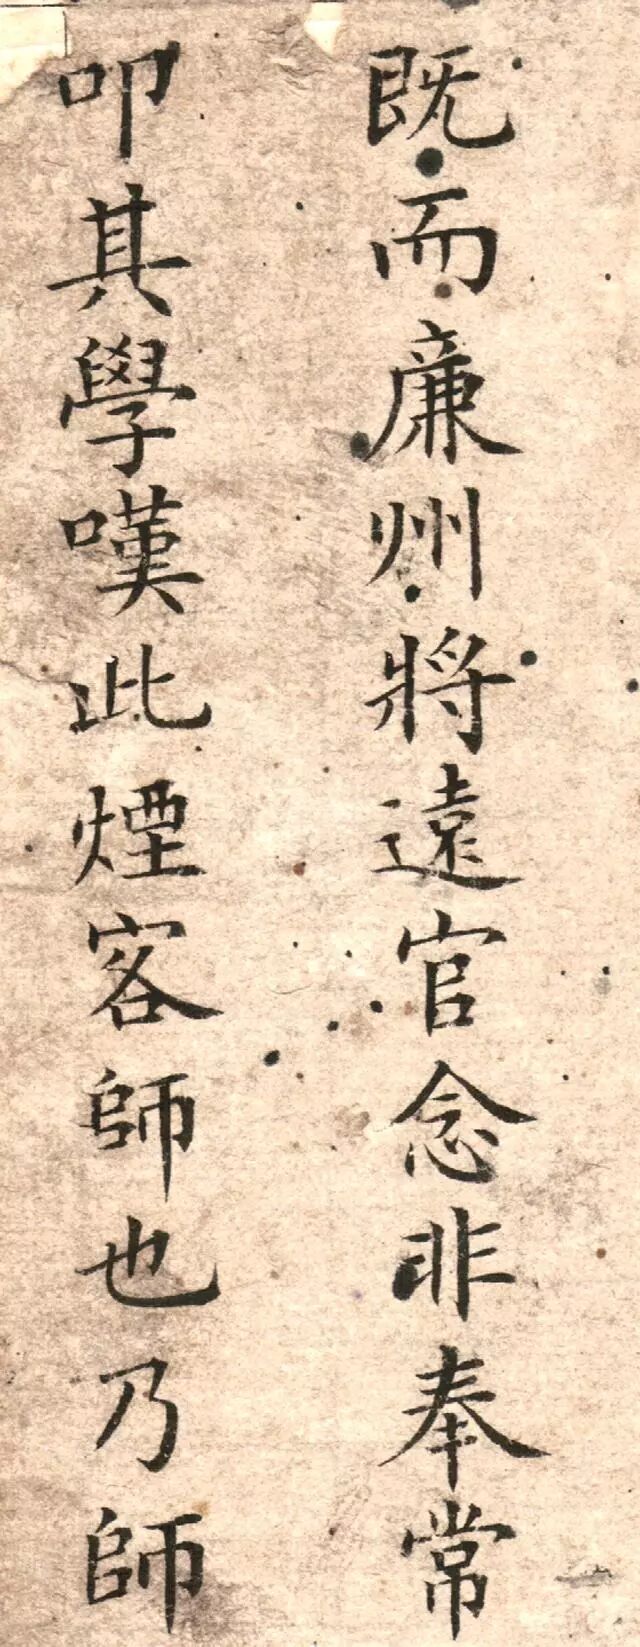 既而廉州將遠官念非奉常
叩其學嘆此煙客師也乃師